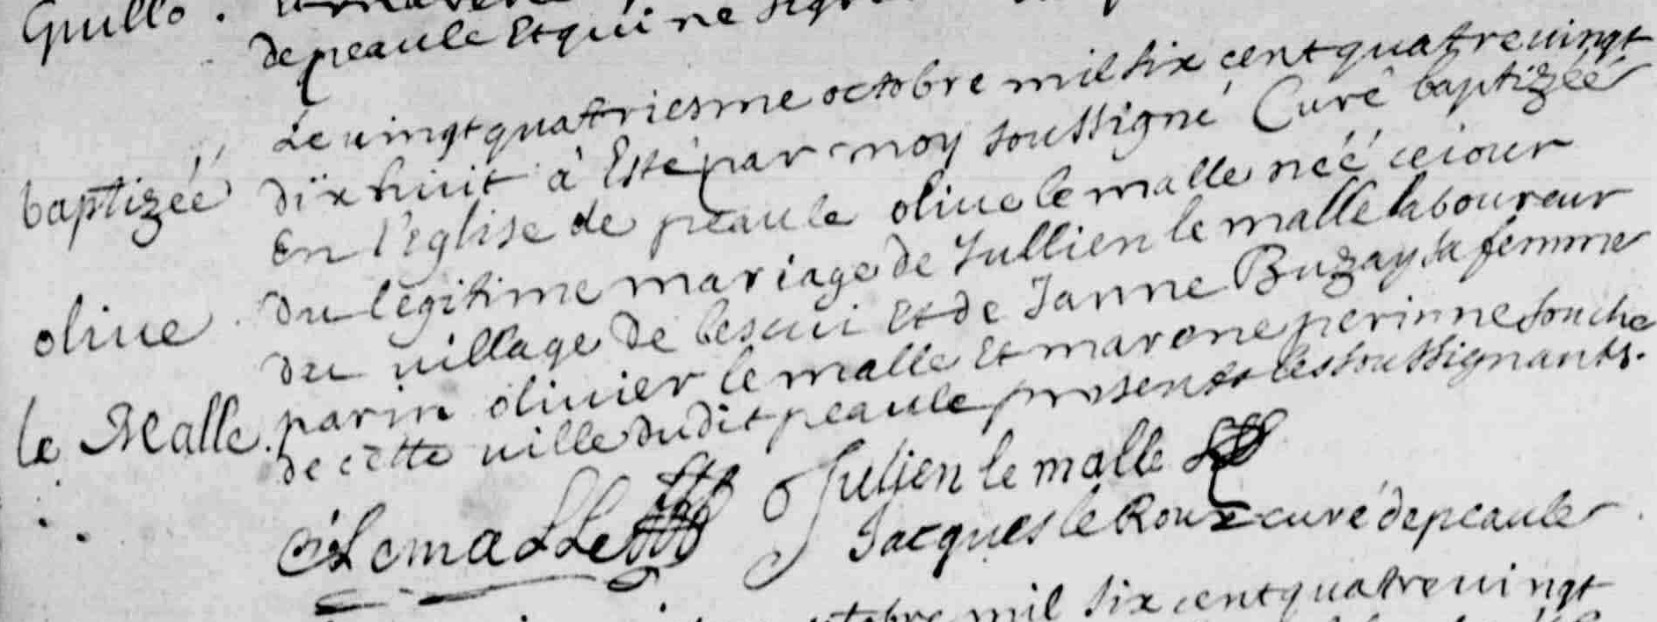 Guillo .
de peaule Et qui ne
Le vingt quatriesme octobre mil six cent quatre uingt
baptizéé dix huit à Esté par moy soussigné Curé baptizéé
En l'église de peaule oliue le malle néé ce iour
oliue . du legitime mariage de Jullien le malle laboureur
du uillage de lescui Et de Janne Buzay sa femme
le Malle . parin oliuier le malle Et marene perinne souche
de cette uille dudit peaule presents les soussignants.
o Lemalle Juljen le malle
Jacques le Roux curé de peaule
octobre mil six cent quatre uingt